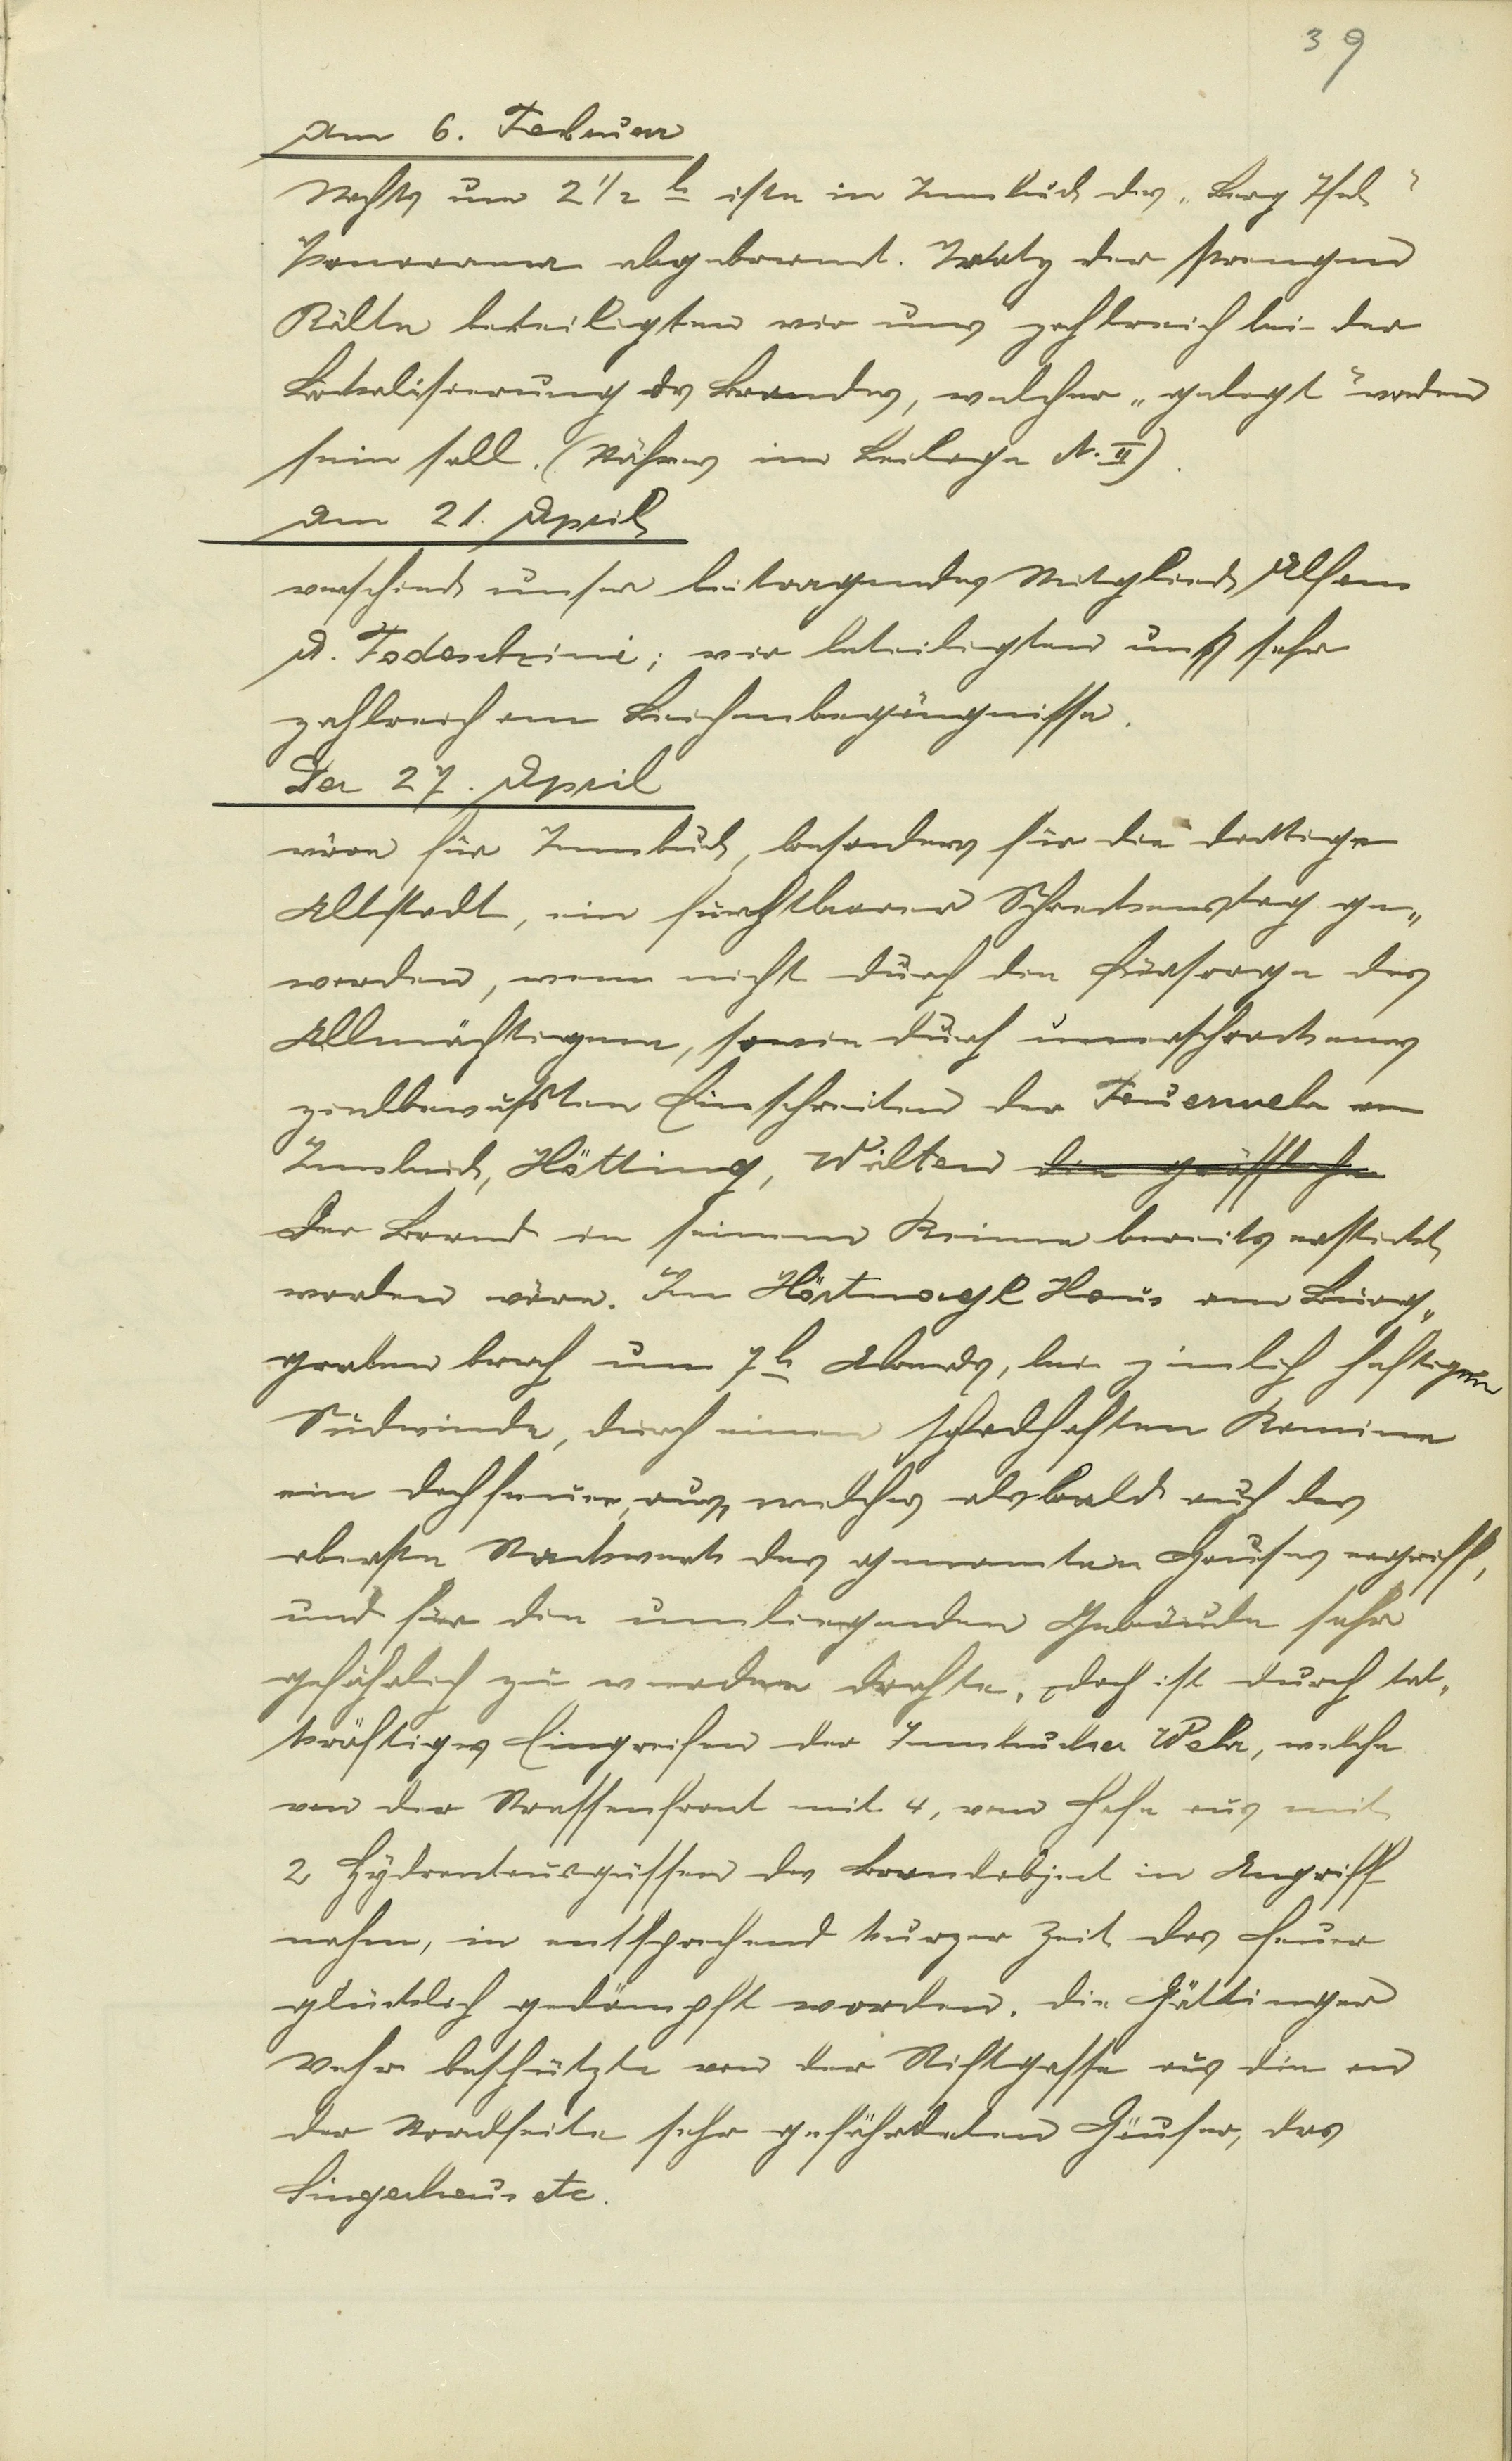 39
Am 6. Februar
Nachts um 2 1/2 h ist in Innsbruck das „Berg Isel"
Panorama abgebrannt. Trotz der strengen
Kälte beteiligten wir uns zahlreich bei der
Lokalisierung des Brandes, welcher „gelegt" worden
sein soll. (Näheres im Beilage N. II).
Am 21. April
verschied unser beitragendes Mitglied Alfons
A. Todeschini; wir beteiligten uns sehr
zahlreich am Leichenbegängnisse.
Der 27. April
wäre für Innsbruck, besonders für die dortige
Altstadt, ein furchtbarer Schreckenstag ge„
worden, wenn nicht durch die Fürsorge des
Allmächtigen, sowie durch unerschrockenes
zielbewußten Einschreiten der Feuerwehr
Innsbruck, Hötting, Wilten die grässliche
der Brand in seinem Keime bereits erstickt
worden wäre. Im Hörtnagl Haus am Burg„
graben brach um 7 h Abends, bei zimlich heftigem
Südwinde, durch einen schadhaften Kamine
ein Dachfeuer aus, welches alsbald auch das
oberste Stockwerk des genannten Hauses ergriff,
und für die umliegenden Gebäude sehr
gefährlich zu werden drohte, doch ist durch tat„
kräftiges Eingreifen der Innsbrucker Wehr, welche
von der Strassenfront mit 4, vom Hofe aus mit
2 Hydrantausgüssen das Brandobject in Angriff
nahm, in entsprechend kurzer Zeit das Feuer
glücklich gedämpft worden. Die Höttinger
Wehr beschützte von der Stiftgasse aus die an
der Nordseite sehr gefährdeten Häuser, das
etc.